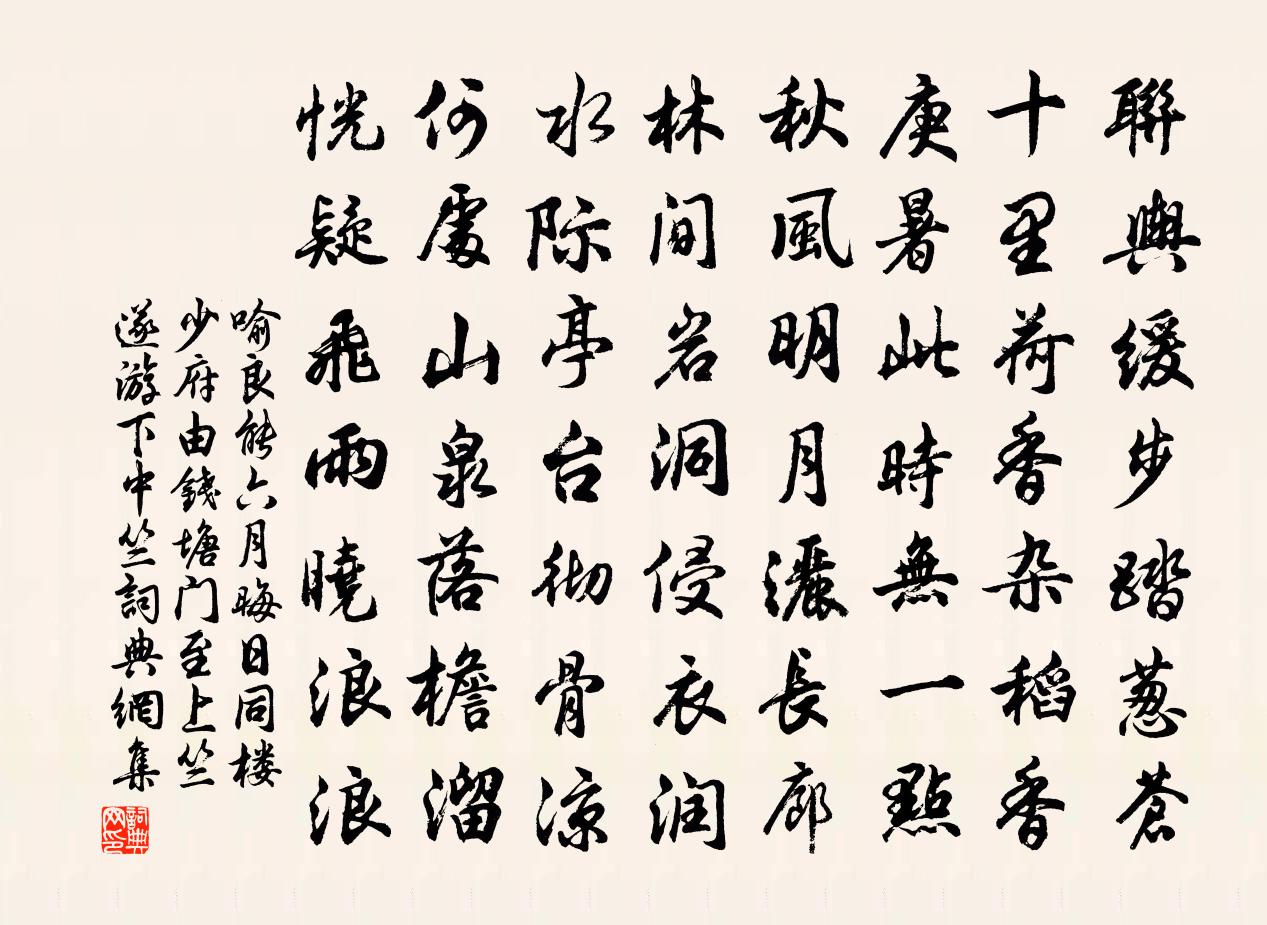 聯輿緩步踏葱蒼
十里荷香杂稻香
庚暑此時無一點
秋風明月灑長廊
林间岩洞侵衣润
水际亭台彻骨凉
何處山泉落檐溜
恍疑飛雨曉浪浪
喻良能六月晦日同楼
少府由錢塘门至上竺
遂游下中竺詞典網集
詞典网印